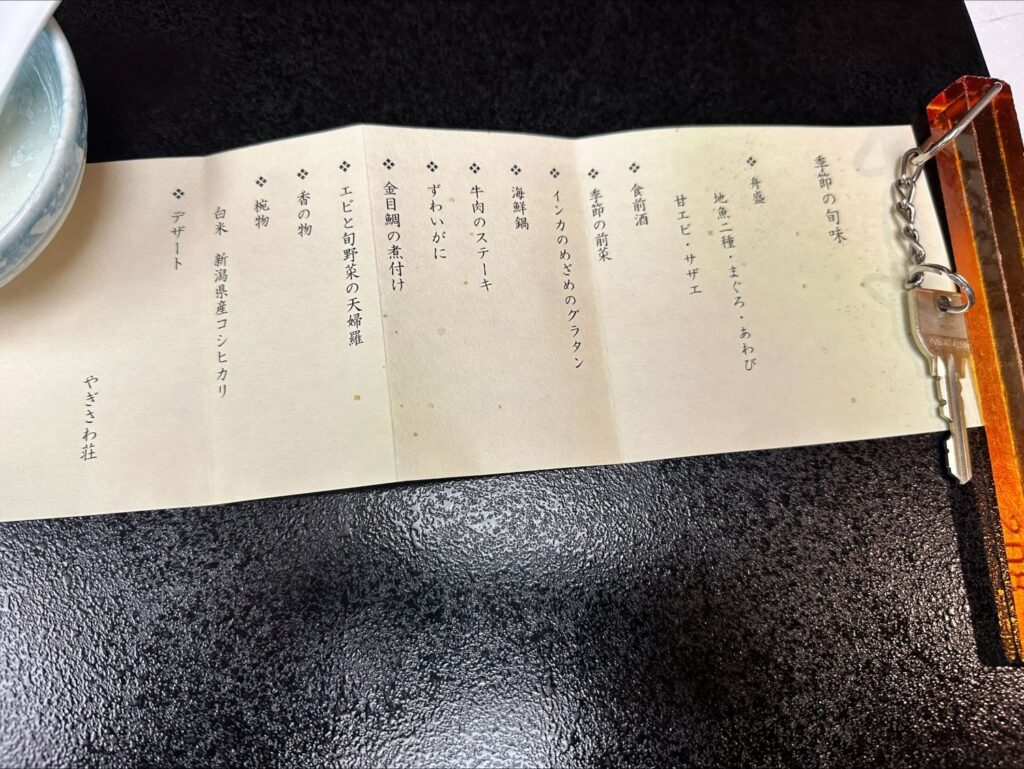 季節の旬味
❖ 舟盛
地魚二種・まぐろ・あわび
甘エビ・サザエ
❖ 食前酒
❖ 季節の前菜
❖ インカのめざめのグラタン
❖ 海鮮鍋
❖ 牛肉のステーキ
❖ ずわいがに
❖ 金目鯛の煮付け
❖ エビと旬野菜の天婦羅
❖ 香の物
❖ 椀物
白米 新潟県産コシヒカリ
❖ デザート
やぎさわ荘